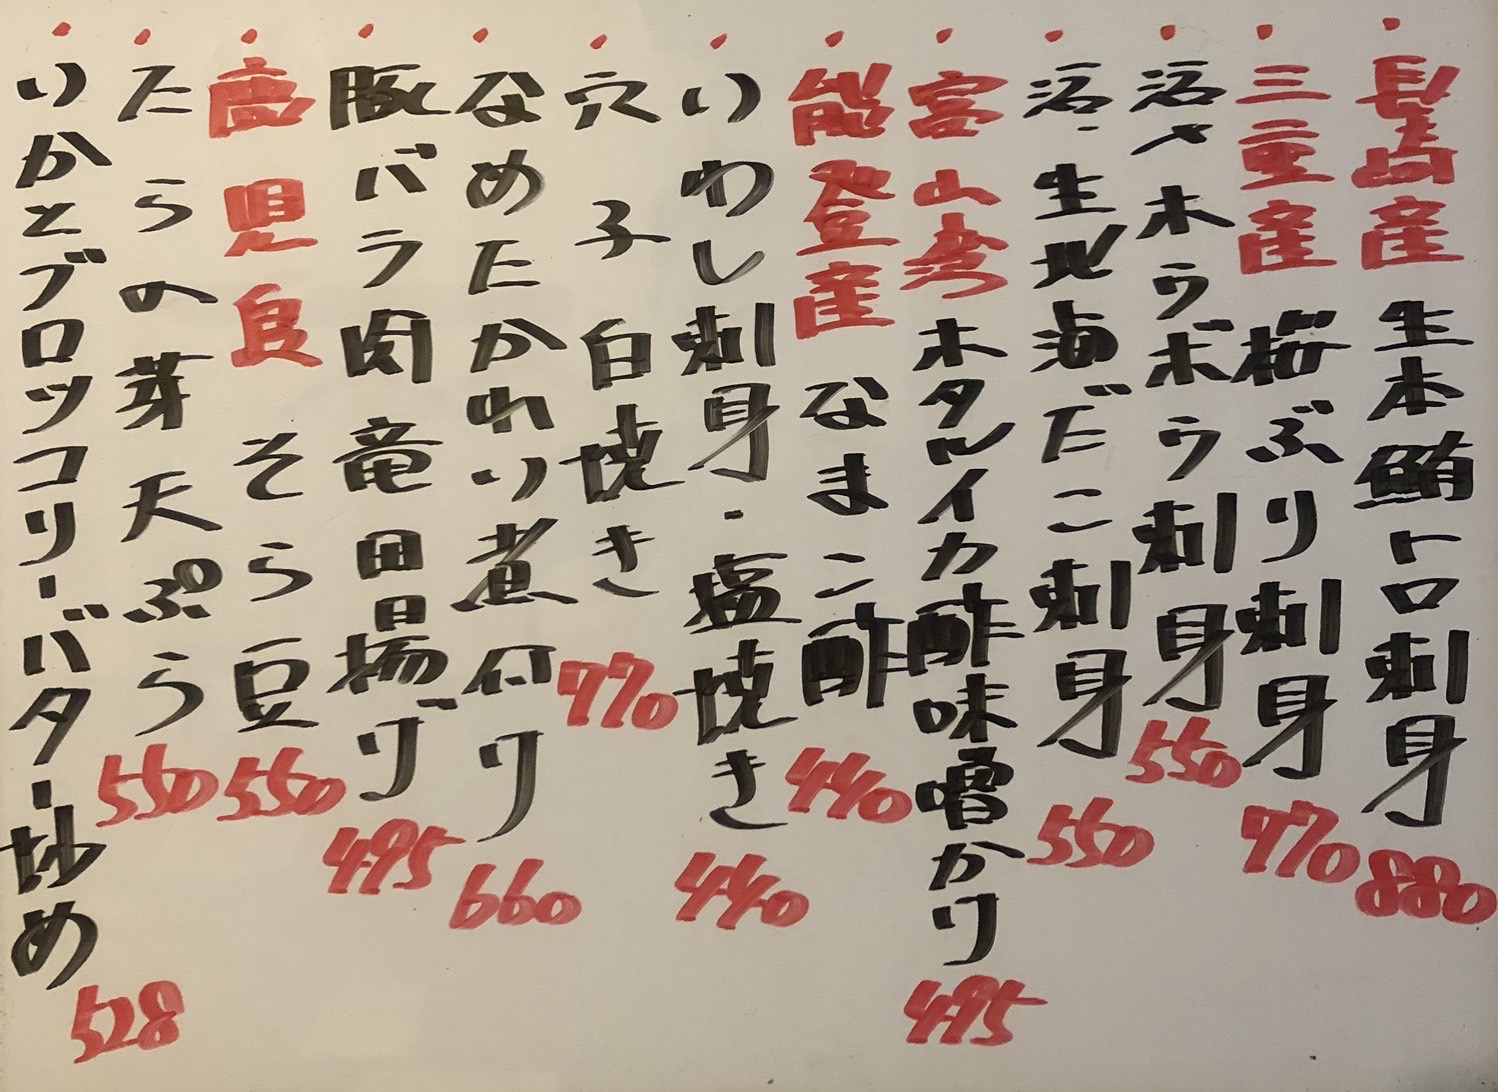 ・長崎産 生本鮪トロ刺身 880
・三重産 桜ぶり刺身 770
・活〆ホウボウ刺身 550
・活・生地海だこ刺身 550
・富山湾ホタルイカ酢味噌かけ 495
・能登産 なまこ酢 440
・いわし刺身・塩焼き 440
・穴子白焼き 770
・なめたかれい煮付け 660
・豚バラ肉竜田揚げ 495
・鹿児島 そら豆 550
・たらの芽天ぷら 550
・いかとブロッコリーバター炒め 528